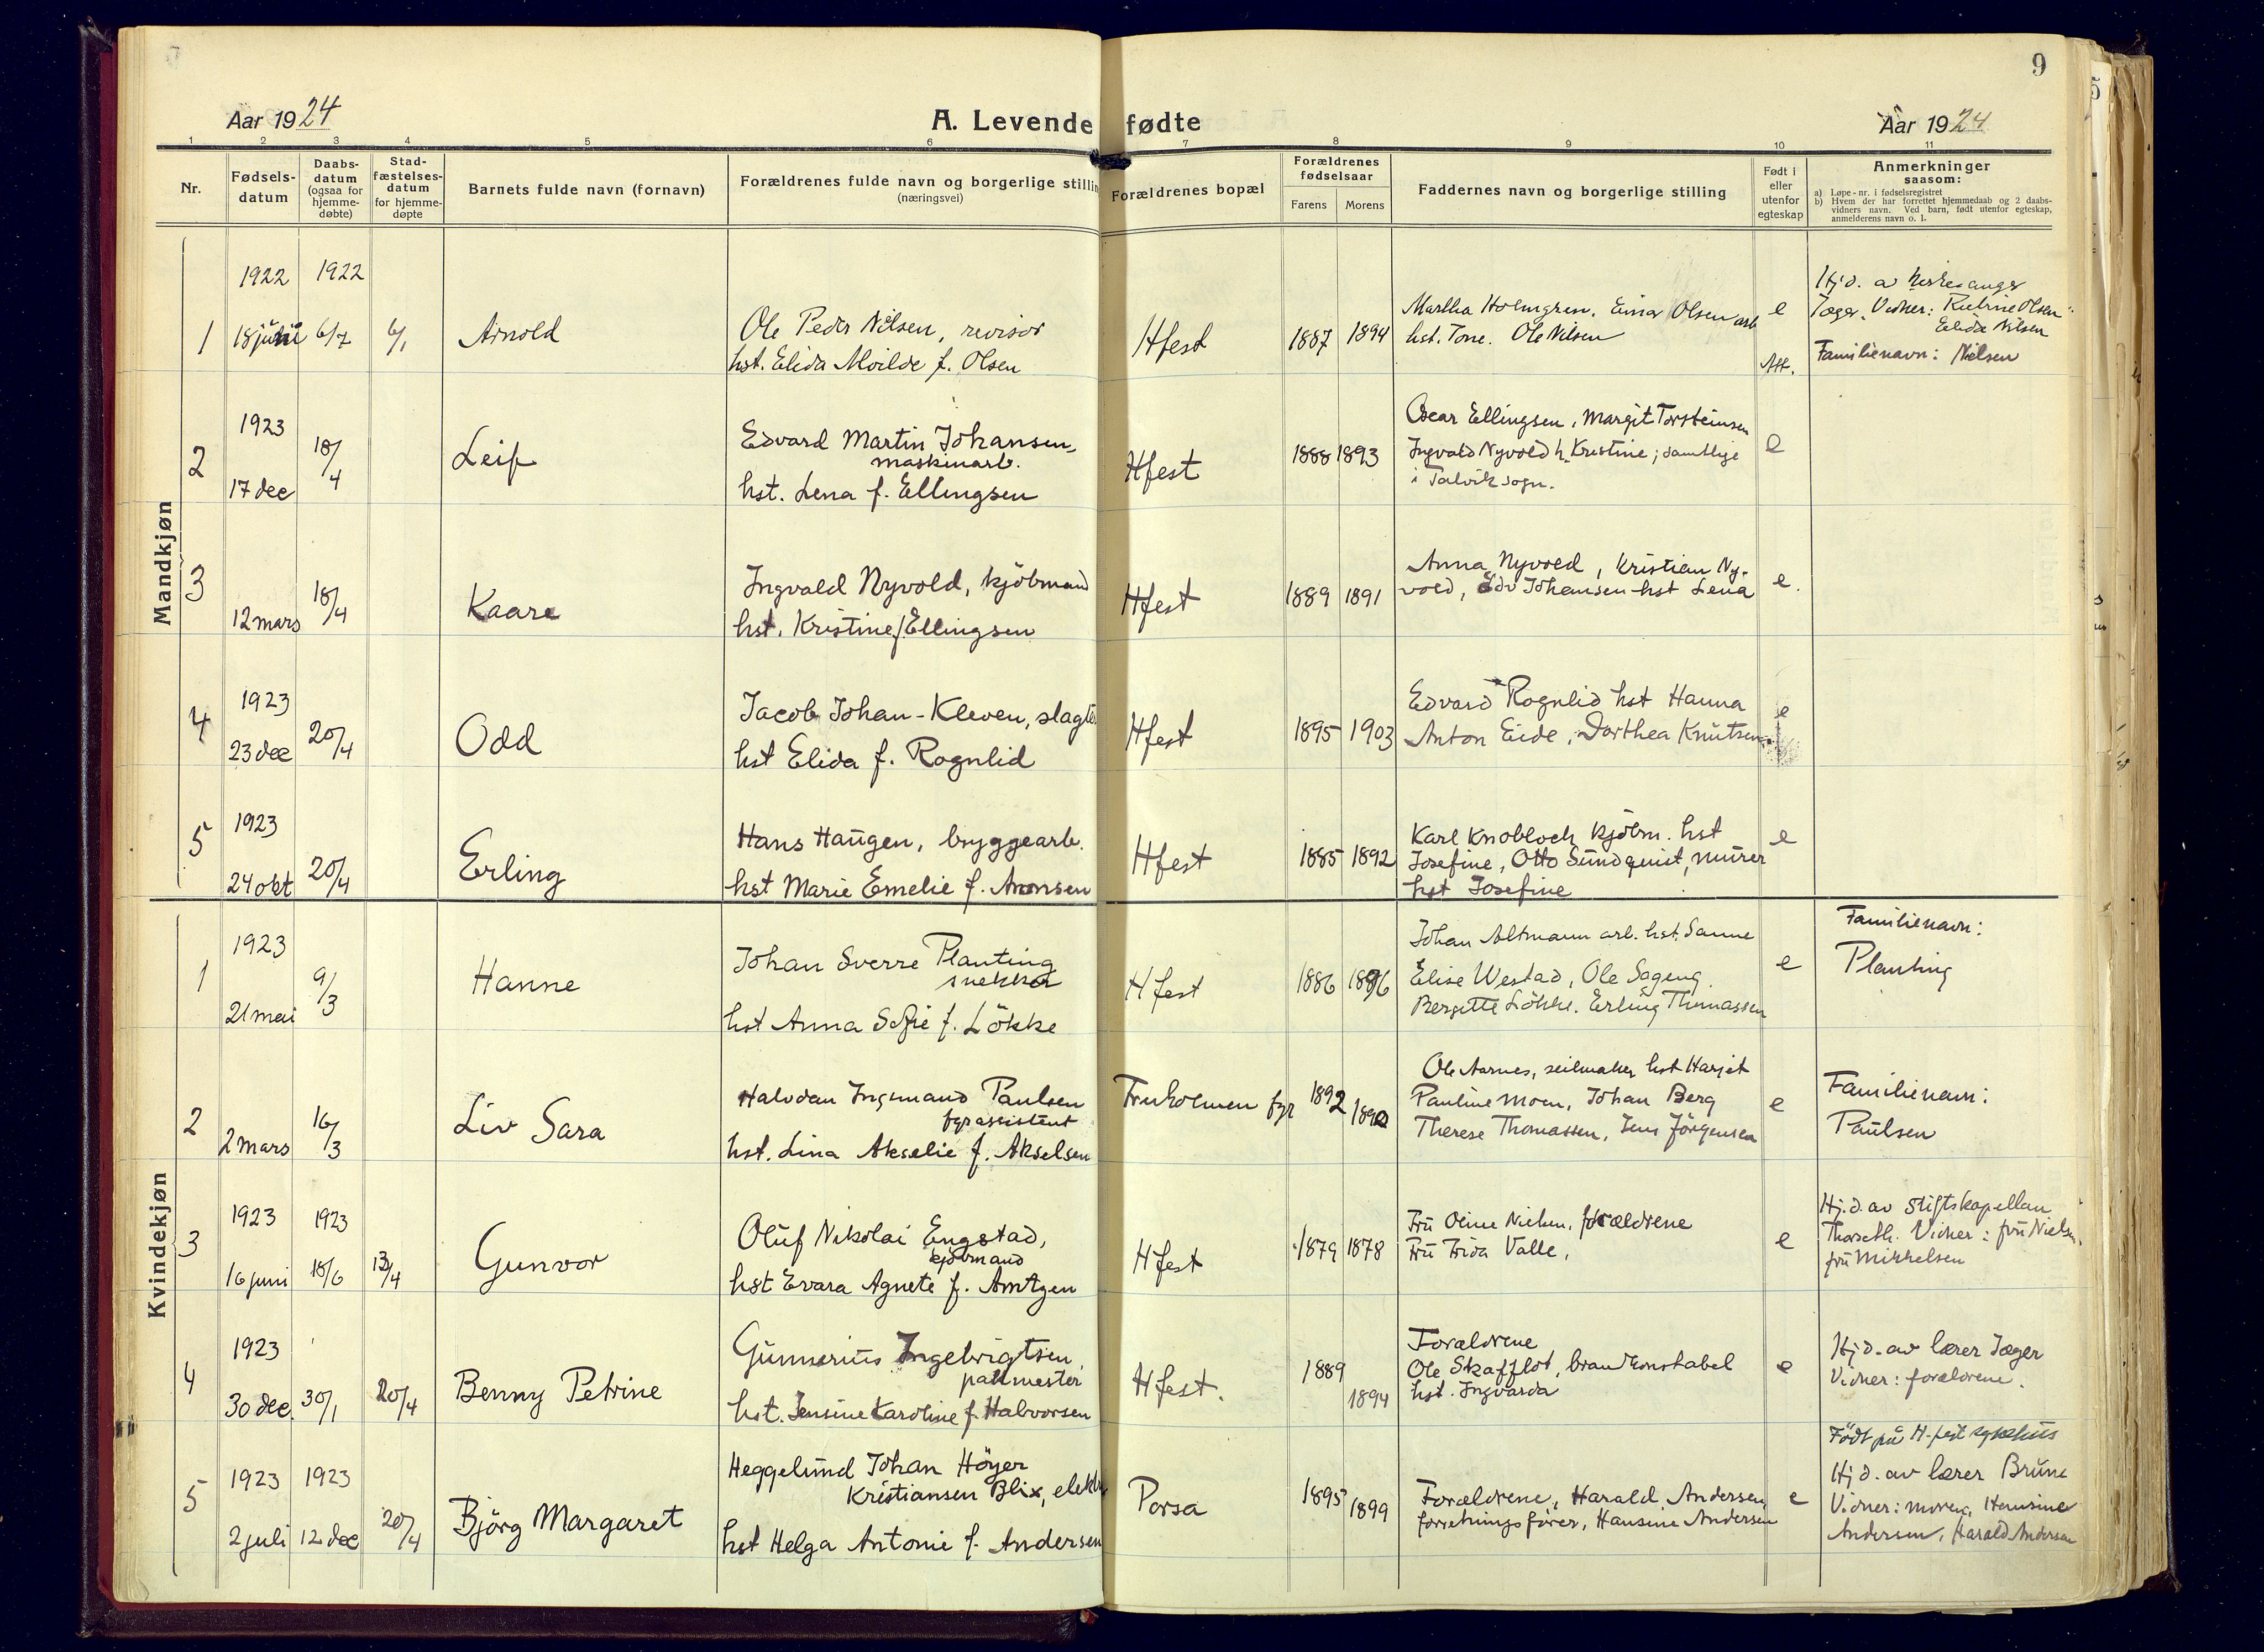 9
Aar 1924
A. Levende fødte
Aar 1924
1 2 3 4 5 6 7 8 9 10 11
Nr.
Fødsels-
datum
Daabs-
datum
(ogsaa for
hjemme-
døbte)
Stad-
fæstelses-
datum
for hjemme-
døpte
Barnets fulde navn (fornavn)
Forældrenes fulde navn og borgerlige stillin
(næringsvei)
Forældrenes bopæl
Forældrenes
fødselsaar
Farens Morens
Faddernes navn og borgerlige stilling
Født i
eller
utenfor
egteskap
Anmerkninger
saasom:
a) Løpe-nr. i fødselsregistret
b) Hvem der har forrettet hjemmedaab og 2 daabs-
vidners navn. Ved barn, født utenfor egteskap,
anmelderens navn o. l.
Mandkjøn
1
1922
18 juni
1922
6/7
6/1
Arnold
Ole Peder Nilsen, revisor
hst. Elida Moilde f. Olsen
Hfest
1887 1894
Martha Holmgren. Einar Olsen arb
hst. Tone. Ole Nilsen
e
Att.
Hj d. a
Jæger. Vidner: Katrine Olsen
Elida Nilsen
Familienavn: Nielsen
2
1923
17 dec
18/4
Leif
Edvard Martin Johansen,
maskinarb.
hst. Lena f. Ellingsen
Hfest
1888 1893
Oscar Ellingsen, Margit Torsteinsen
Ingvald Nyvold h. Kristine; samtlige
i Talvik sogn.
e
3
12 mars
18/4
Kaare
Ingvald Nyvold, kjöbmand
hst. Kristine f. Ellingsen
Hfest
1889 1891
Anna Nyvold, Kristian Ny-
vold, Edv Johansen hst Lena
e.
4
1923
23 dec
20/4
Odd
Jacob Johan-Kleven, slagte
hst Elida f. Rognlid
Hfest
1895 1903
Edvard Rognlid hst Hanna
Anton Eide, Dorthea Knutsen.
e
5
1923
24 okt
20/4
Erling
Hans Haugen, bryggearb.
hst Marie Emelie f. Aronsen
Hfest
1885 1892
Karl Knobloch kjöbm. hst
Josefine, Otto Sundquist, murer
hst Josefine
e
Kvindekjøn
1
1923
21 mai
9/3
Hanne
Johan Sverre Planting
snekker
hst Anna Sofie f. Lökke
Hfest
1886 1896
Johan Altmann arb. hst. Sanne
Elise Westad, Ole Sageng
Bergitte Lökke. Erling Thomassen
e
Familienavn:
Planting
2
2 mars
16/3
Liv Sara
Halvdan Ingemand Paulsen
fyrassistent
hst. Lina Akselie f. Akselsen
Fruholmen fyr
1892 1890
Ole Aarnes, seilmaker hst Harjet
Pauline Moen, Johan Berg
Therese Thomassen, Jens Jörgensen
e
Familienavn:
Paulsen
3
1923
16 juni
1923
18/6
13/4
Gunvor
Oluf Nikolai Engstad,
kjöbmand
hst Evara Agnete f. Amtgen
Hfest
1879 1878
Fru Oline Nielsen, forældrene
Fru Frida Valle,
e
Hj. d. av stiftskapellan
Thorseth. Vidner: fru Nielsen,
fru Mikkelsen
4
1923
30 dec.
30/1
20/4
Benny Petrine
Gunnerius Ingebrigtsen,
pakmester
hst. Jensine Karoline f. Halvorsen
Hfest.
1889
1894
Forældrene
Ole Skafflot, brandkonstabel
hst. Ingvarda
e
Hj d. av lærer Jæger
Vidner: forældrene.
5
1923
2 juli
1923
12 dec
20/4
Björg Margaret
Heggelund Johan Höyer
Kristiansen Blix, elektr
hst Helga Antonie f. Andersen
Porsa
1895 1899
Forældrene, Harald Andersen
forretningsfører, Hansine Andersen
e
Född på H.fest sykehus
Hj d. av lærer Brune
Vidner: moren, Hansine
Andersen, Harald Andersen